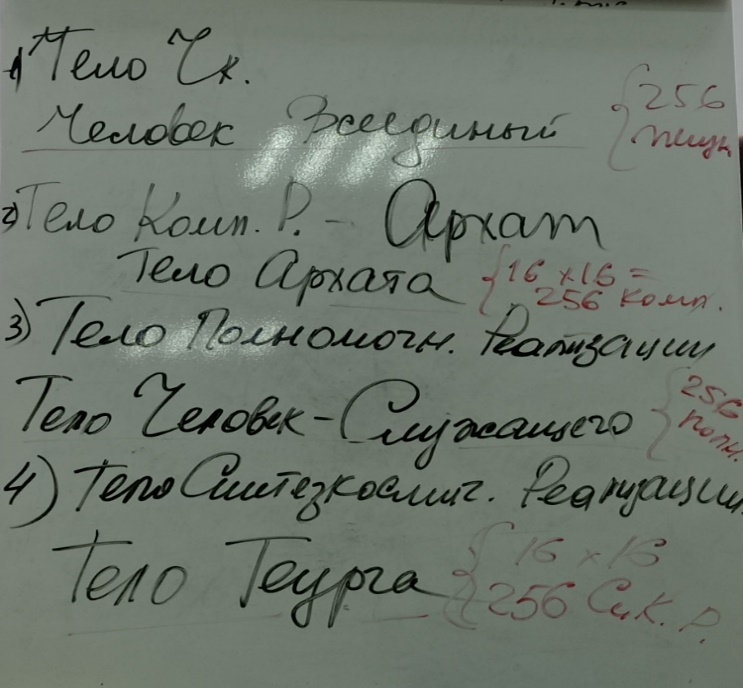 1) Тело Чк.
Человек Всеединый { 256
2) Тело Комп. Р. - Архат
Тело Архата { 16 х 16 =
256 комп.
3) Тело Полномочн. Реализации
Тело Человек-Служащего { 256
полн.
4) Тело Синтезкосмич. Реализации
Тело Теурга { 16 х 16
256 Си.К. Р.